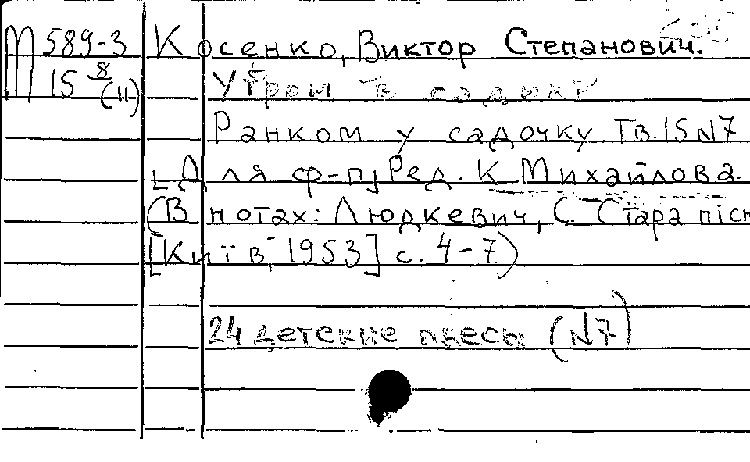 М 589-3 Косенко, Виктор Степанович.
15 8/(11) Утром в садике
Ранком у садочку. Тв. 15 N7
[Для ф-п] Ред. К Михайлова.
(В нотах: Людкевич, С. Стара пісн
[Київ, 1953] с. 4-7)
24 детские пьесы (N7)